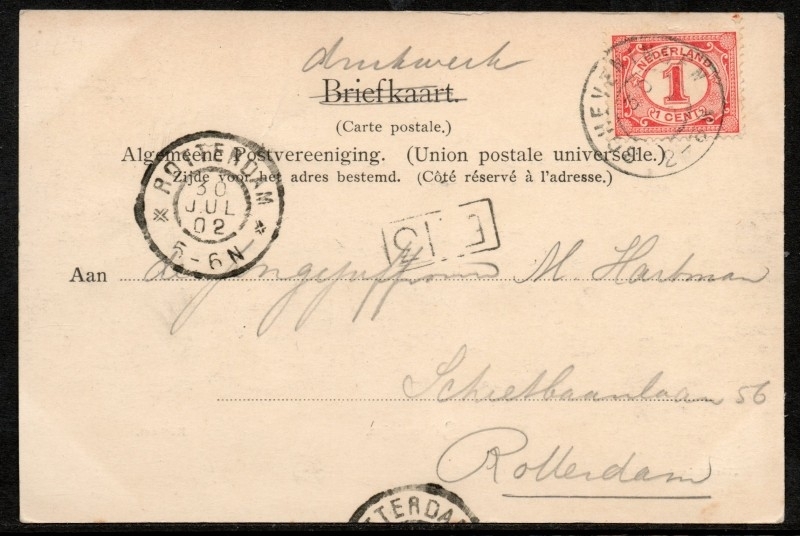 drukwerk
Briefkaart.
(Carte postale.)
Algemeene Postvereeniging. (Union postale universelle.)
Zijde voor het adres bestemd. (Côté réservé à l'adresse.)
NEDERLAND
1
1 CENT
ROTTERDAM
30
JUL
02
5-6N
Aan Mejongejuffrouw M. Hartman
Schietbaanlaan 56
Rotterdam
TTERDA